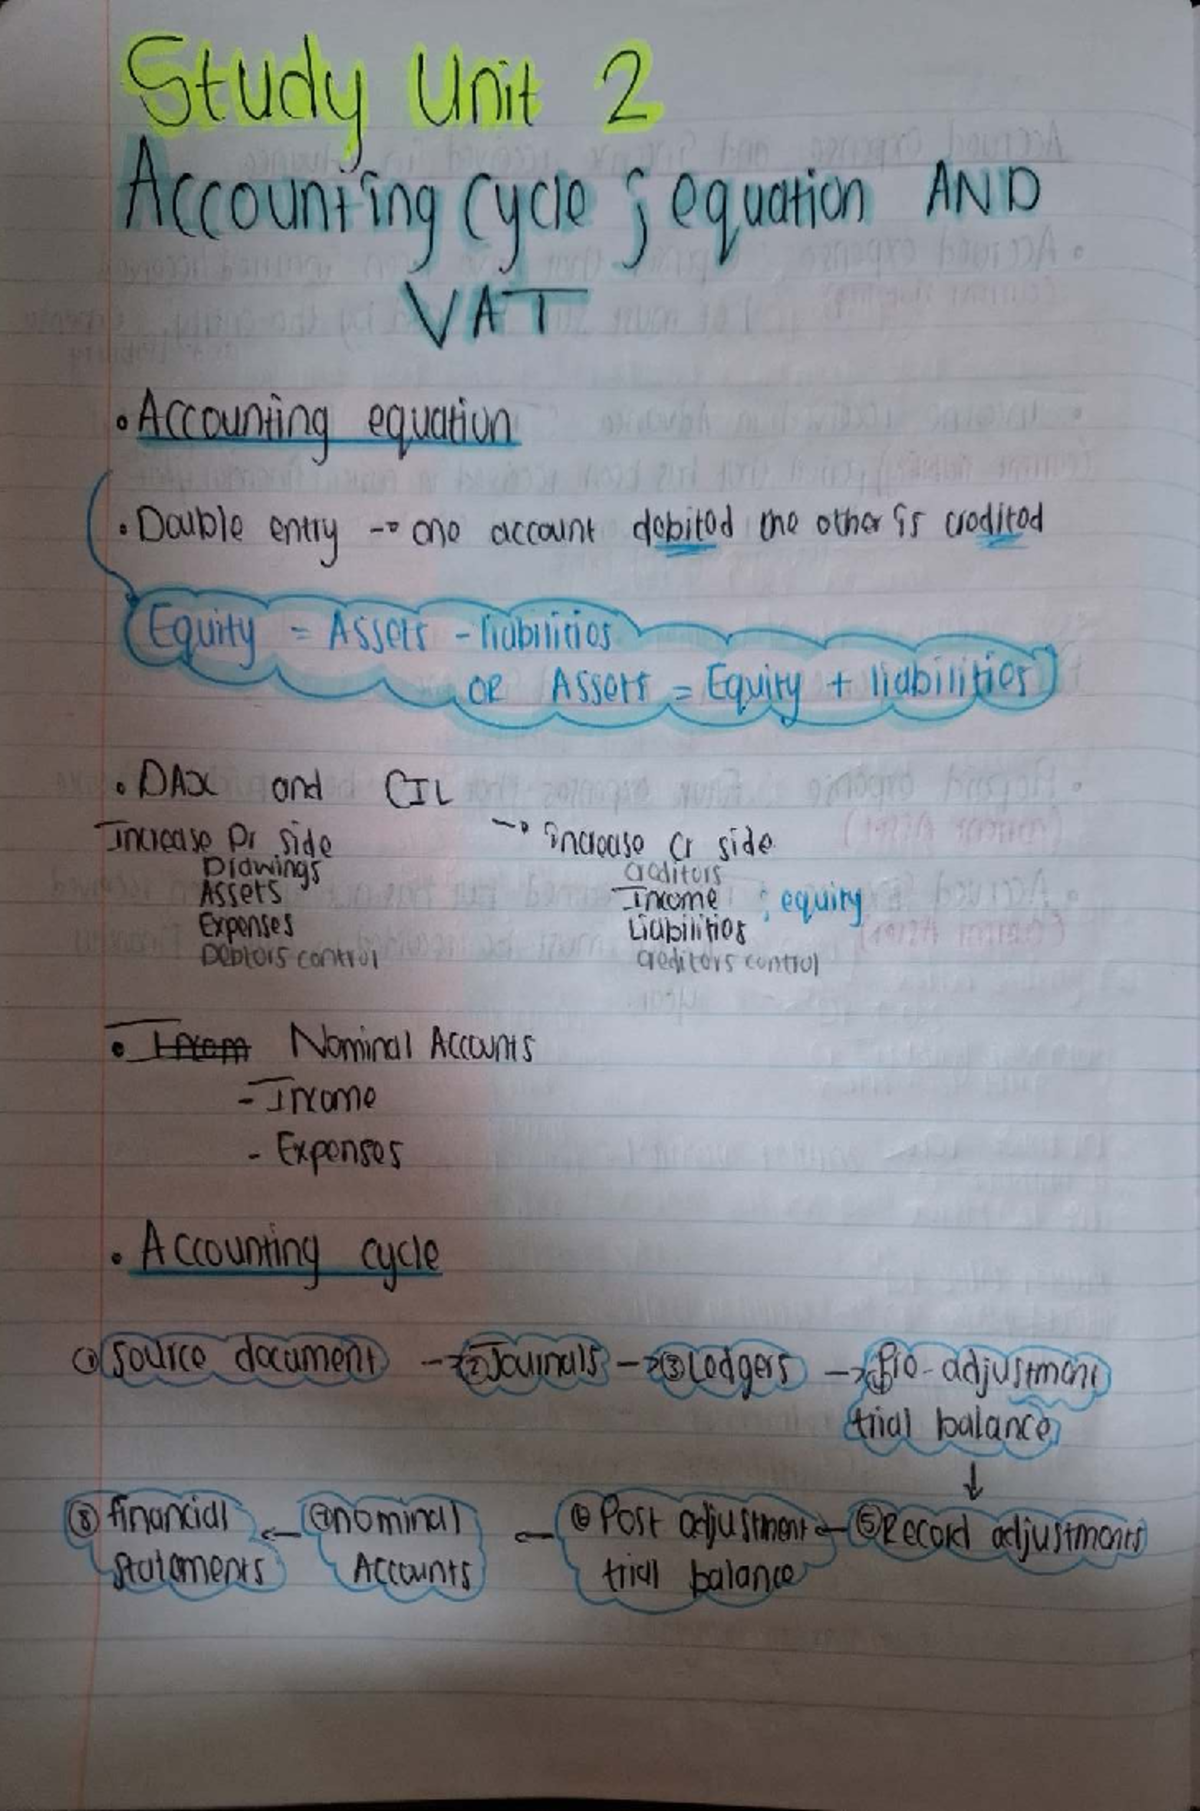 Study Unit 2
Accounting cycle ; equation AND
VAT
• Accounting equation
• Double entry → one account debited the other is credited
Equity = Assets - liabilities
OR Assets = Equity + liabilities
• DAX and CIL
Increase Dr side → increase Cr side
Drawings creditors
Assets Income ; equity
Expenses Liabilities
Debtors control creditors control
• Nominal Accounts
- Income
- Expenses
• Accounting cycle
① source document → ② Journals → ③ Ledgers → ④ Pre-adjustment
trial balance
↓
⑧ financial ← ⑦ nominal ← ⑥ Post adjustment ← ⑤ Record adjustments
statements Accounts trial balance